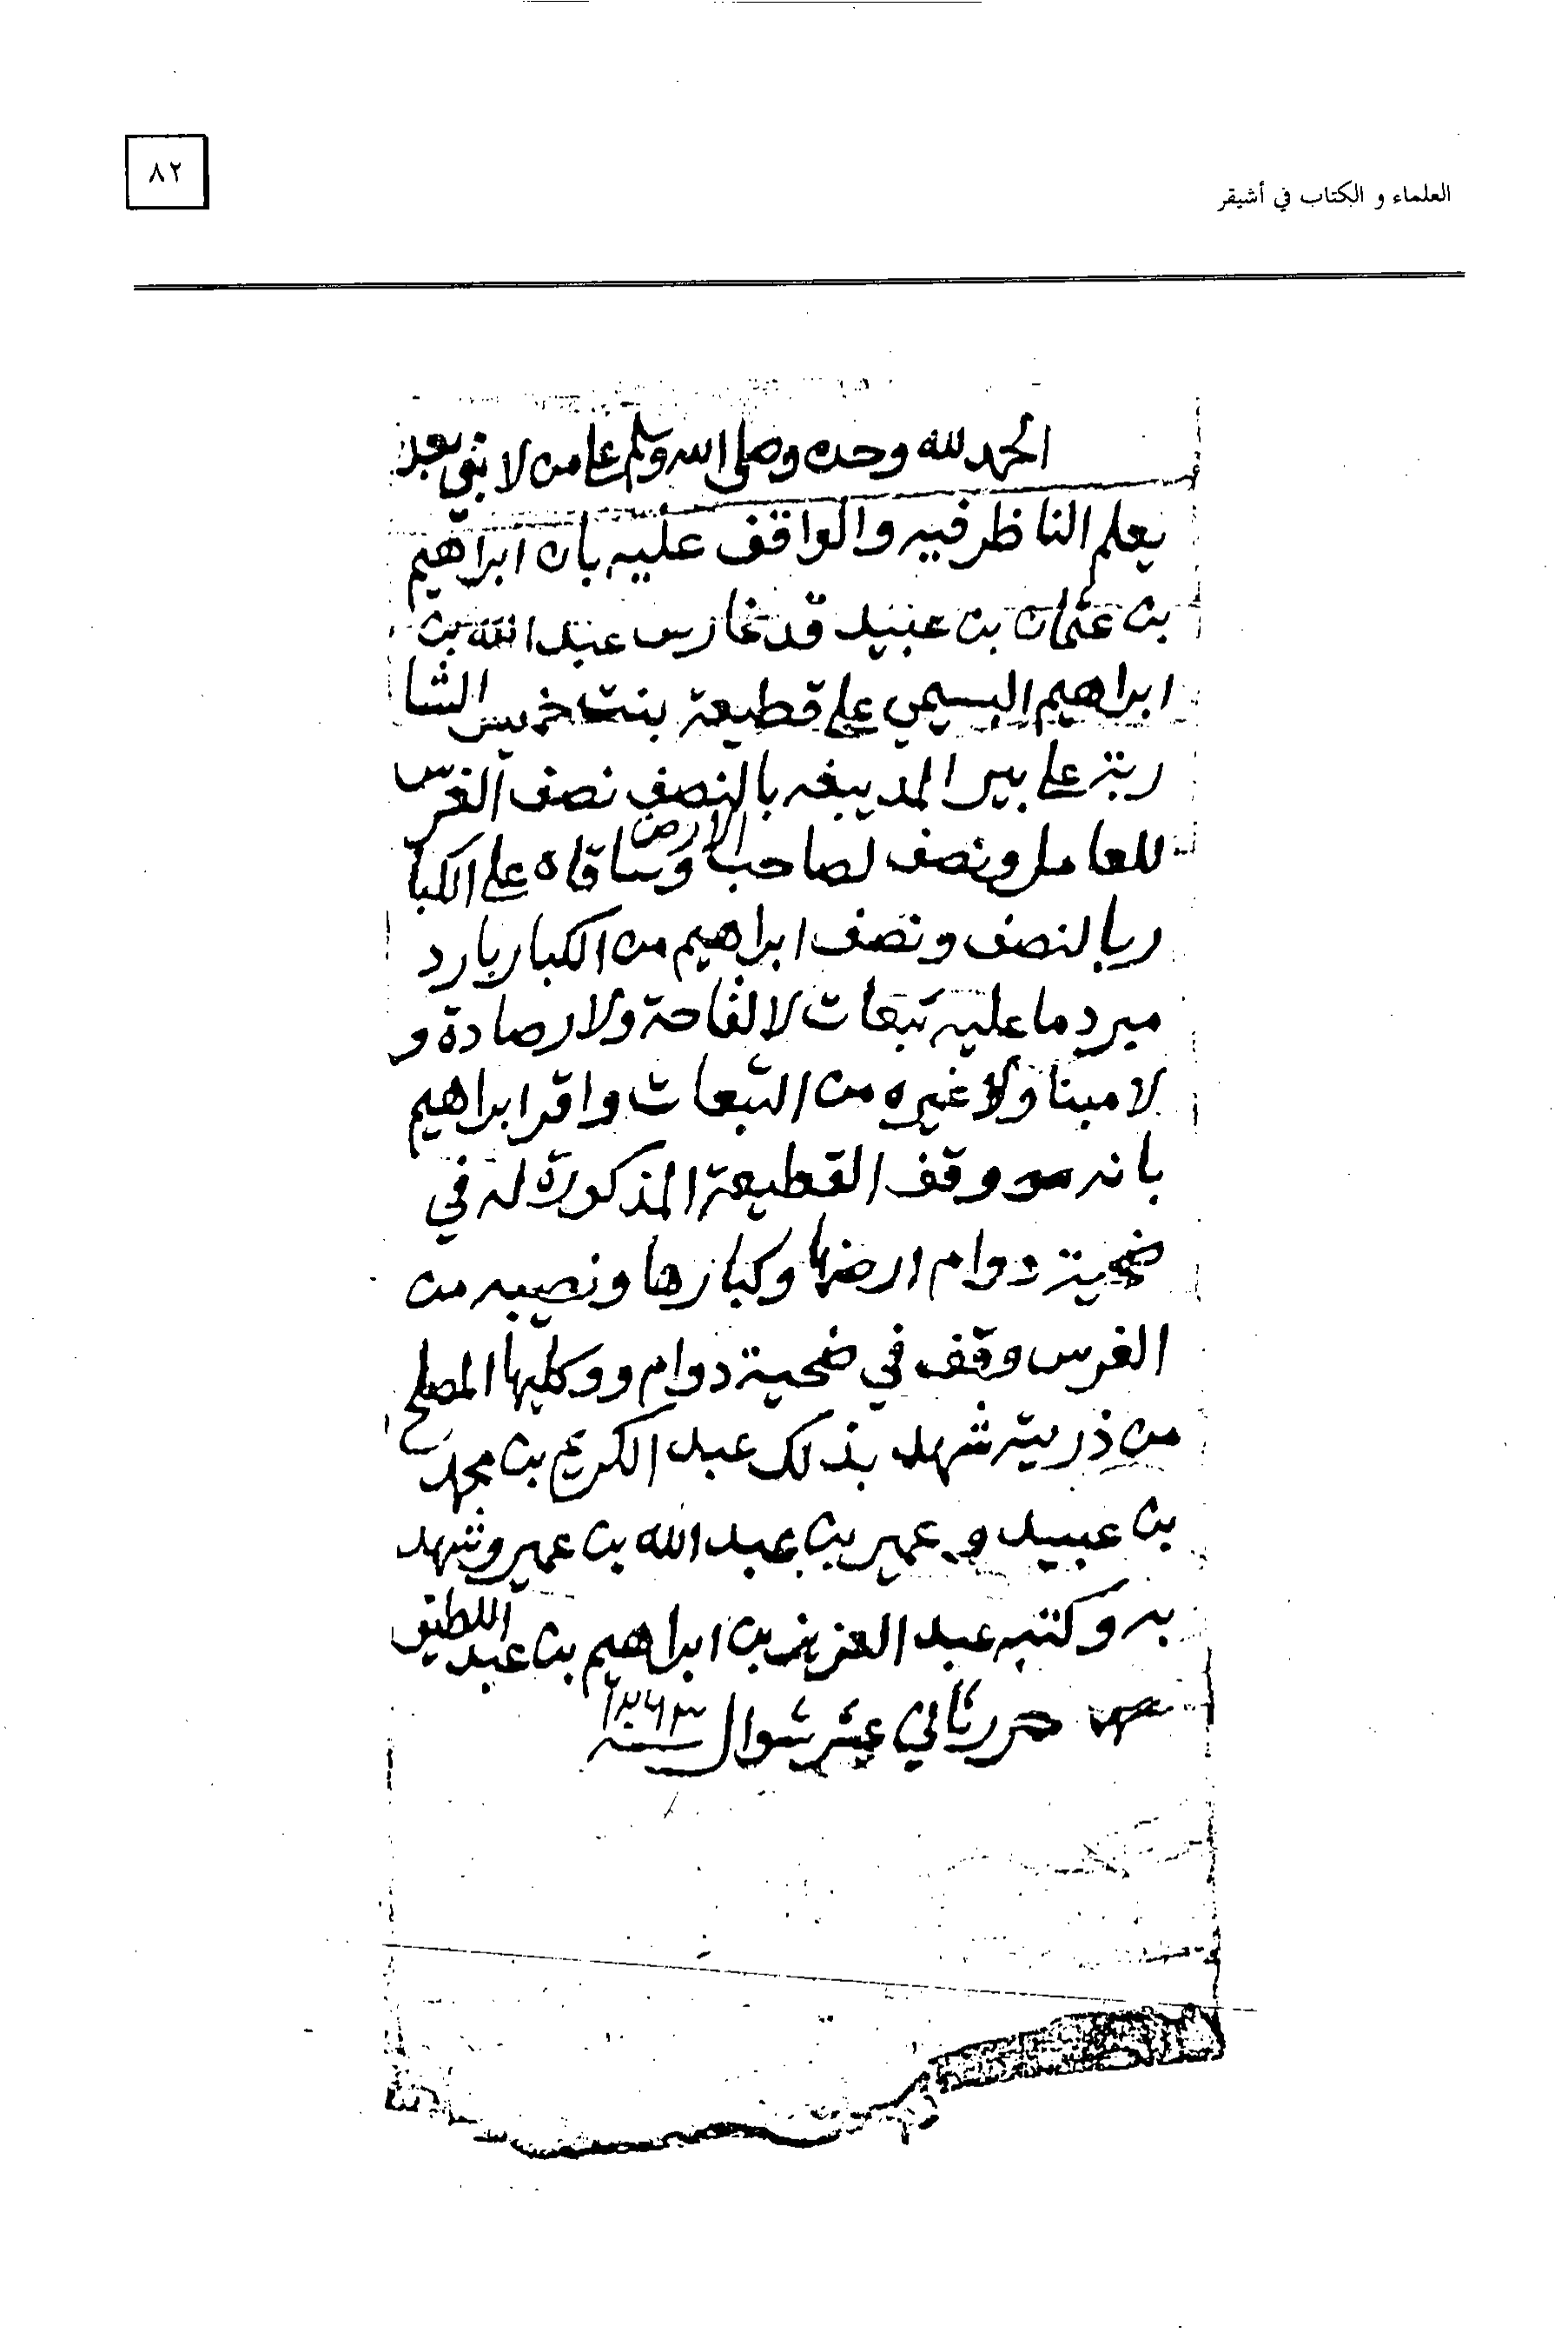 العلماء و الكتاب في أشيقر
٨٢
الحمد لله وحده وصلى الله وسلم على من لا نبي بعده
يعلم الناظر فيه والواقف عليه بان ابراهيم
بن عثمان بن عبيد قد غارس عبد الله بن
ابراهيم البسيمي على قطيعة بنت خميس الشا
ربة على بير المديبغه بالنصف نصف الغرس
للعامل ونصف لصاحب الارض وساقاه على الكبا
ر بالنصف ونصف ابراهيم من الكبار بارد
مبرد ما عليه تبعات لا لقاحة ولا رصادة و
لا مبنا ولا غيره من التبعات واقر ابراهيم
بانه وقف القطيعة المذكورة له في
ضحية دوام ارضها وكبارها ونصيبه من
الغرس وقف في ضحية دوام ووكليها المصلح
من ذريته شهد بذلك عبد الكريم بن محمد
بن عبيد و عمير بن عبد الله بن عمير وشهد
به وكتبه عبد العزيز بن ابراهيم بن عبد اللطيف
حرر ثاني عشر شوال سنة ١٢٦٣